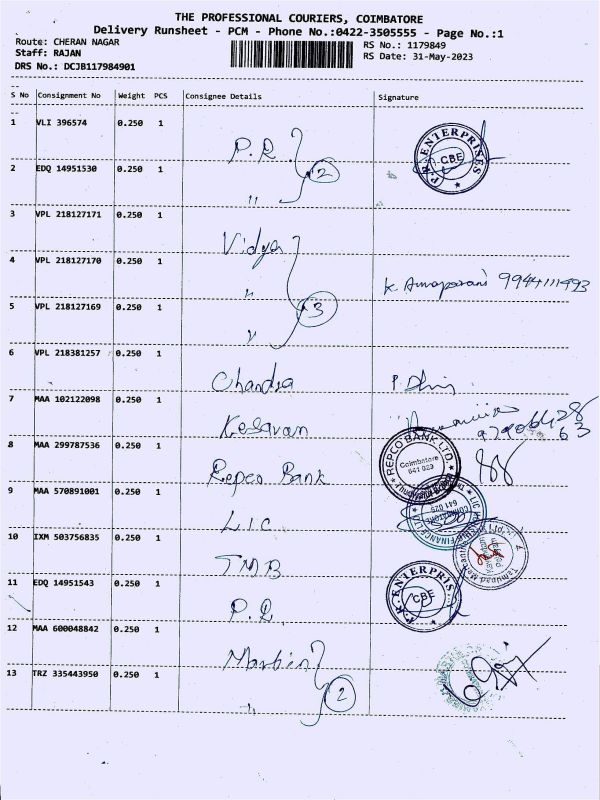 THE PROFESSIONAL COURIERS, COIMBATORE
Delivery Runsheet - PCM - Phone No.:0422-3505555 - Page No.:1
Route: CHERAN NAGAR RS No.: 1179849
Staff: RAJAN RS Date: 31-May-2023
DRS No.: DCJB117984901
S No Consignment No Weight PCS Consignee Details Signature
1 VLI 396574 0.250 1 P.R. P.R. ENTERPRISES CBE
2 EDQ 14951530 0.250 1 " 2
3 VPL 218127171 0.250 1 Vidya
4 VPL 218127170 0.250 1 " 9944111493
5 VPL 218127169 0.250 1 " 3
6 VPL 218381257 0.250 1 Chandra
7 MAA 102122098 0.250 1 Kesavan
8 MAA 299787536 0.250 1 Repco Bank REPCO BANK LTD. Coimbatore 641 029
9 MAA 570891001 0.250 1 L.I.C 641 029
10 IXM 503756835 0.250 1 TMB
11 EDQ 14951543 0.250 1 P.R. ENTERPRIS CBE
12 MAA 600048842 0.250 1 Martin
13 TRZ 335443950 0.250 1 " 2